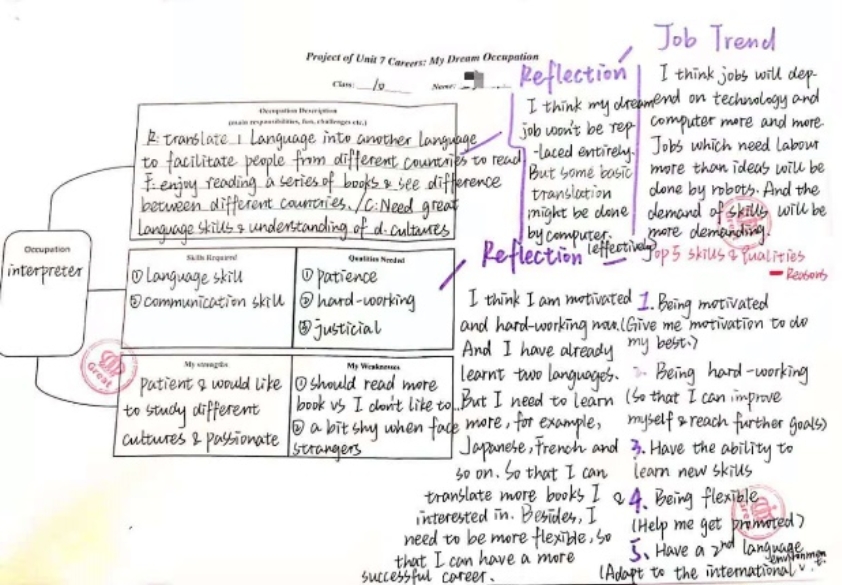 Project of Unit 7 Careers: My Dream Occupation
Class: 10 Name:
Occupation Description
(main responsibilities, fun, challenges etc.)
R: translate 1 Language into another language
to facilitate people from different countries to read
F: enjoy reading a series of books & see difference
between different countries. / C: Need great
language skills & understanding of d. cultures
Occupation
interpreter
Skills Required
① language skill
② communication skill
Qualities Needed
① patience
② hard-working
③ justicial
My strengths
patient & would like
to study different
cultures & passionate
My Weaknesses
① should read more
book vs I don't like to...
② a bit shy when face
strangers
Great
Reflection
I think my dream
job won't be rep-
laced entirely.
But some basic
translation
might be done
by computer.
(effectively)
Job Trend
I think jobs will dep-
end on technology and
computer more and more.
Jobs which need labour
more than ideas will be
done by robots. And the
demand of skills will be
more demanding.
Reflection
I think I am motivated
and hard-working now.
And I have already
learnt two languages.
But I need to learn
more, for example,
Japanese, French and
so on. So that I can
translate more books I
interested in. Besides, I
need to be more flexible, so
that I can have a more
successful career.
Top 5 skills & Qualities
— Reasons
1. Being motivated
(Give me motivation to do
my best.)
2. Being hard-working
(So that I can improve
myself & reach further goals)
3. Have the ability to
learn new skills
& 4. Being flexible
(Help me get promoted)
5. Have a 2nd language
(Adapt to the international environment.